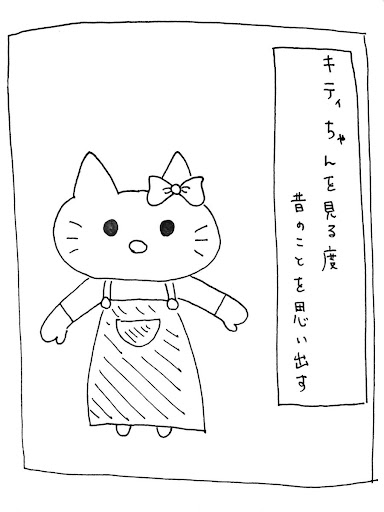 キティちゃんを見る度
昔のことを思い出す